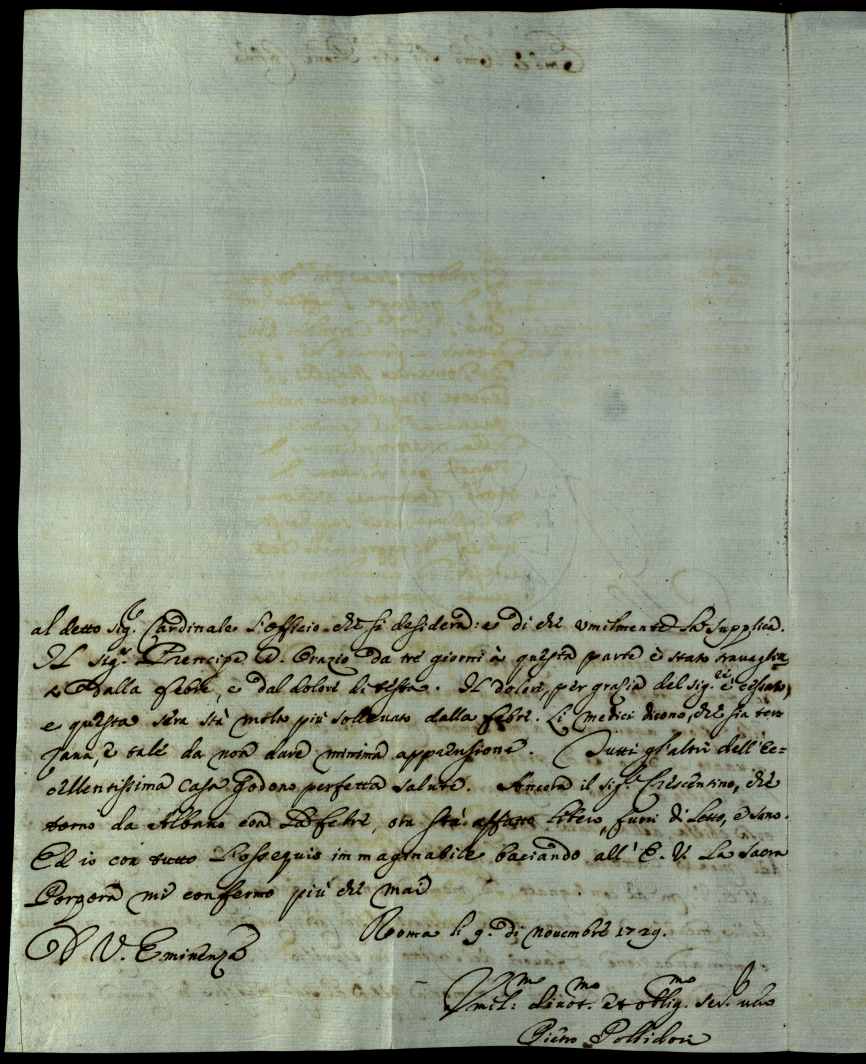 al detto Sig.r Cardinale l'officio che si desidera: e di che umilmente la supplica.
Il Sig.r Prencipe D. Orazio da tre giorni à questa parte è stato travaglia
to dalla febre, e dal dolore di testa. Il dolore, per grazia del Sig.re è cessato,
e questa sera stà molto più sollevato dalla febre. Li medici dicono, che sia ter
zana, e tale da non dare minima apprensione. Tutti gl'altri dell'Ec=
cellentissima Casa godono perfetta salute. Ancora il Sig.r Crescentino, che
torno da Albano con la febre, ora stà affatto libero, fuori di letto, e sano.
Ed io con tutto l'ossequio immaginabile baciando all'E. V. la Sacra
Porpora mi confermo più che mai
D V. Eminenza
Roma li 9. di Novembre 1729.
Umil.mo Divot.mo et oblig.mo Ser.
Pietro Pollidori